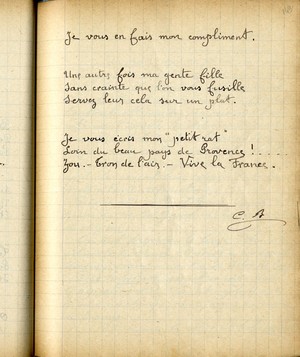 Je vous en fais mon compliment.
Une autre fois ma gente fille
Sans crainte que l'on vous fusille
Servez leur cela sur un plat.
Je vous écris mon "petit rat"
Loin du beau pays de Provence !....
Zou. - tron de l'air. - Vive la France.
C. A